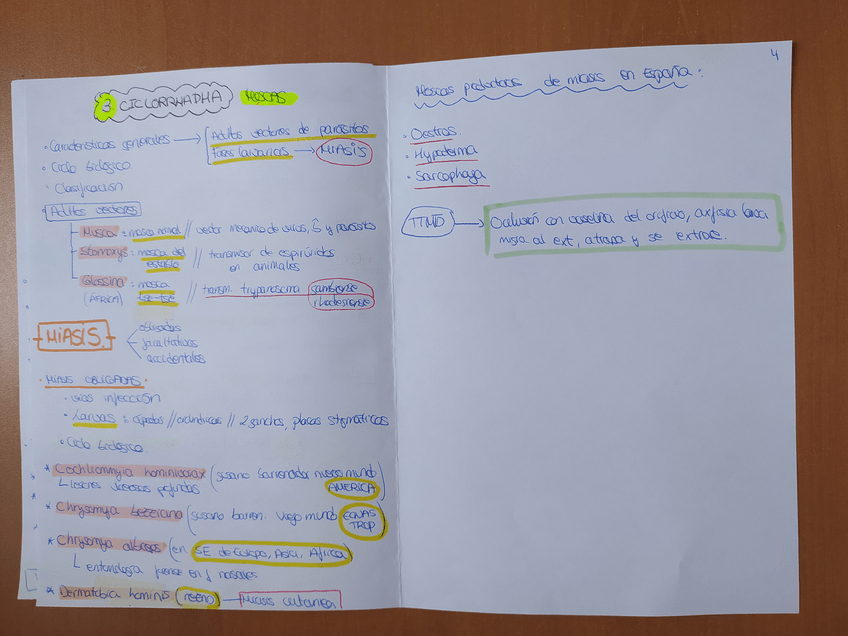 3 CICLORRHAPHA MOSCAS
· Características generales → Adultos vectores de parásitos
Fases larvarias → MIASIS
· Ciclo biológico
· Clasificación
· Adultos vectores
Musca = mosca normal // vector mecánico de virus, y parásitos
Stomoxys = mosca del establo // transmisor de espirúridos
en animales
Glossina = mosca tse-tse // transm. trypanosoma gambiense
(ÁFRICA) rhodesiense
MIASIS
obligadas
facultativas
accidentales
· MIASIS OBLIGADAS
· vías infección
· Larvas = ápodas // cilíndricas // 2 ganchos, placas stigmáticas
· Ciclo biológico
* Cochliommyia hominivorax (gusano barrenador nuevo mund
AMERICA)
lesiones profundas
* Chrysomya bezziana (gusano barren. viejo mund
TROP)
* Chrysomya albiceps (en SE de Europa, Asia, África)
entomología forense en
* Dermatobia hominis → Miasis cutanea
4
Moscas productoras de miasis en España:
· Oestros
· Hypoderma
· Sarcophaga
TTMTO → Oclusión con vaselina del orificio, asfixia larva
migra al ext, atrapa y se extrae.